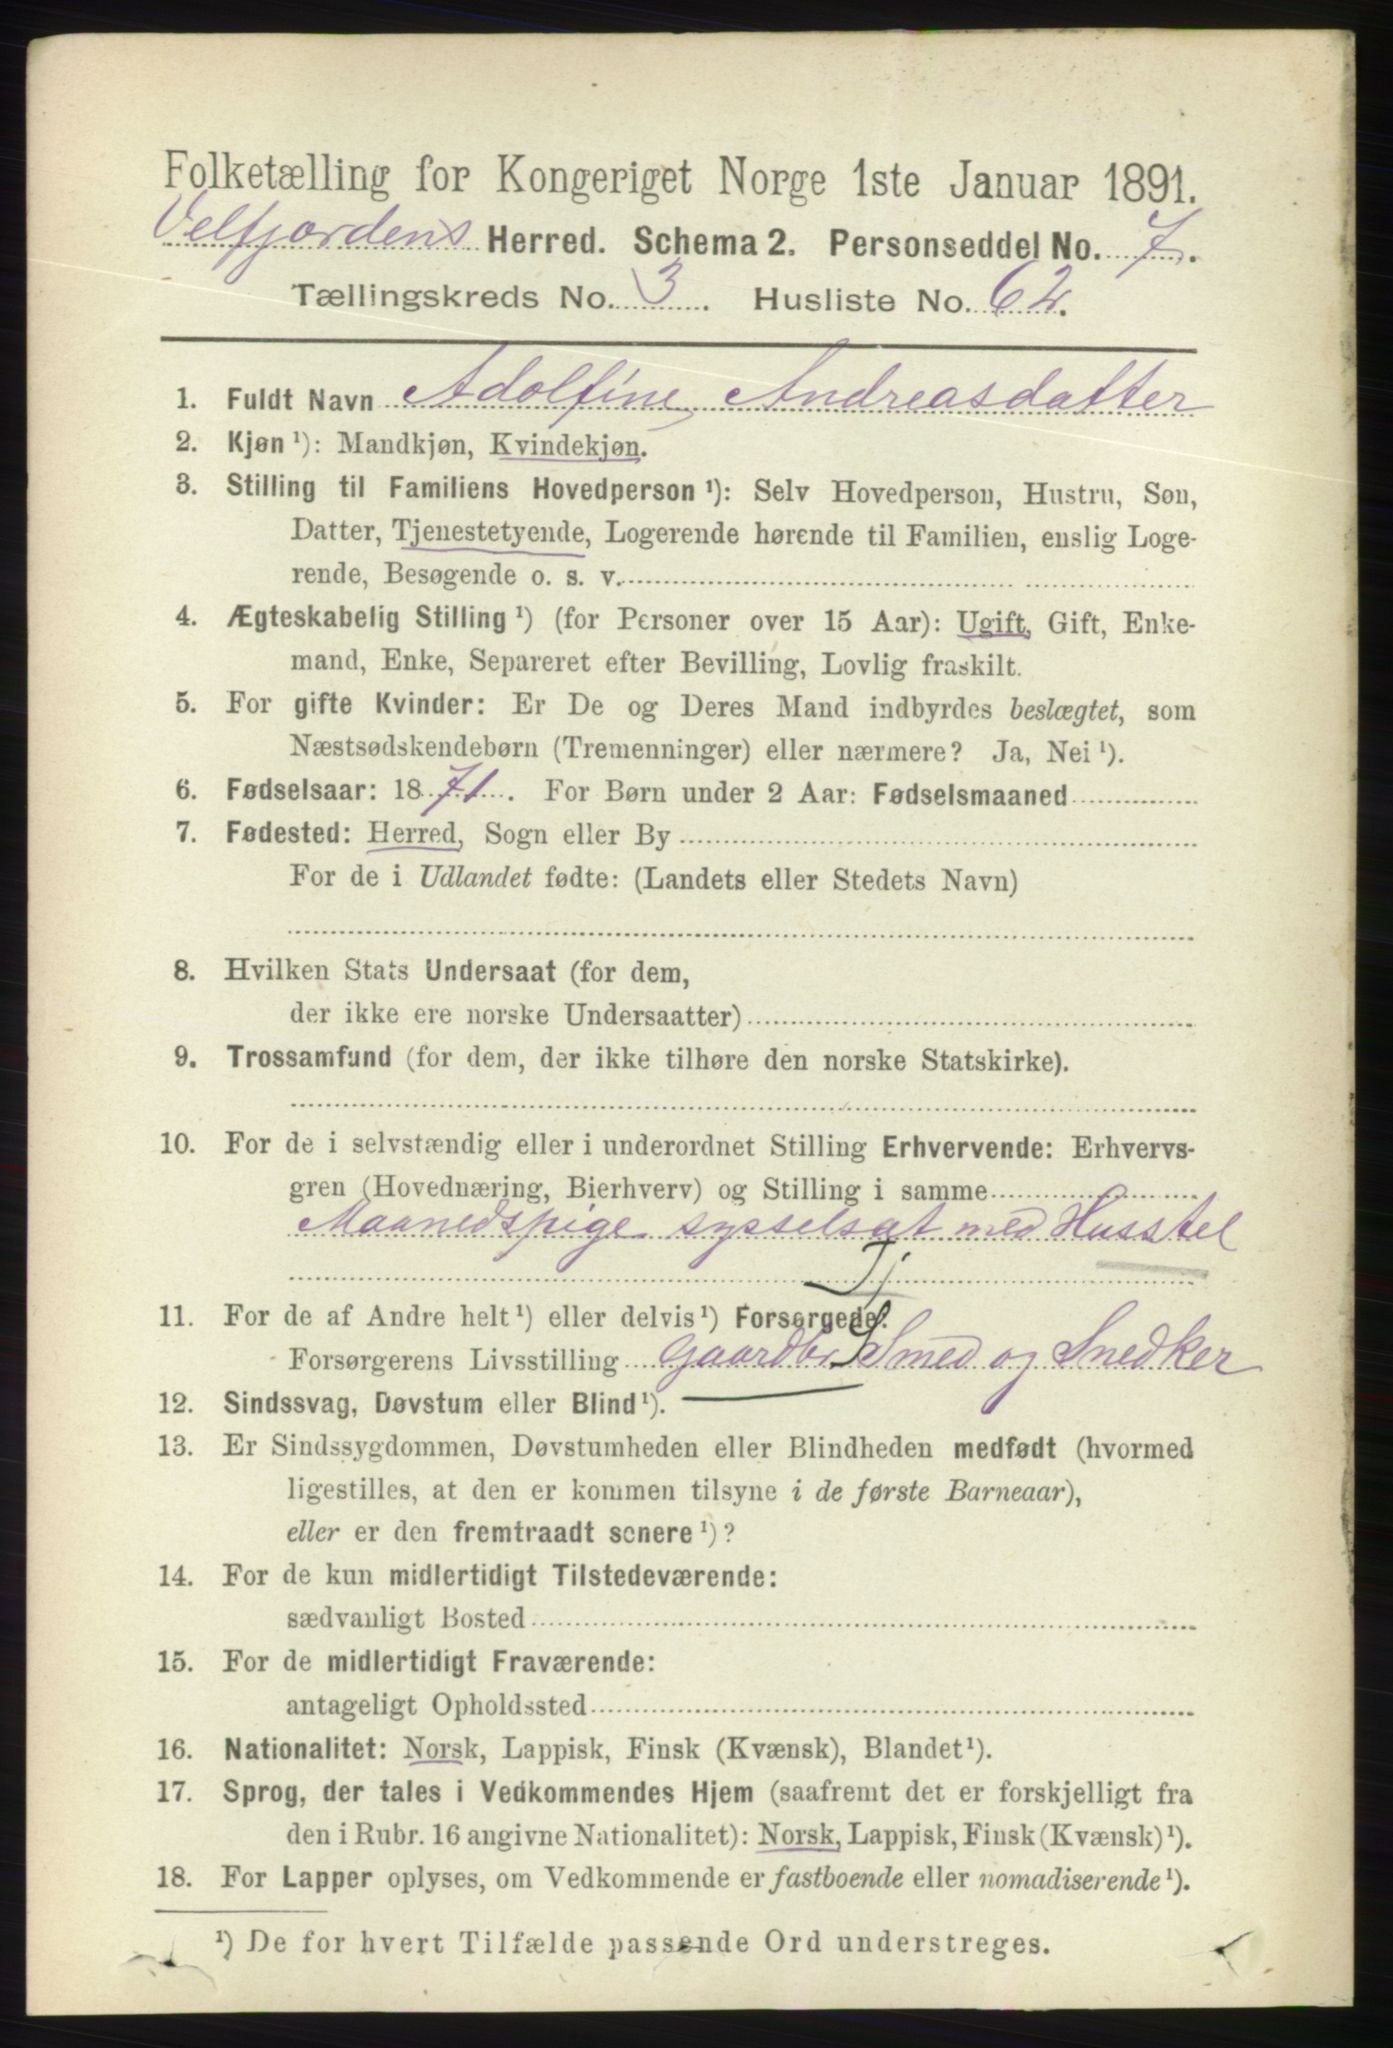 Folketælling for Kongeriget Norge 1ste Januar 1891.
Velfjordens Herred. Schema 2. Personseddel No. 7.
Tællingskreds No. 3. Husliste No. 62.
1. Fuldt Navn Adolfine Andreasdatter
2. Kjøn ¹): Mandkjøn, Kvindekjøn.
3. Stilling til Familiens Hovedperson ¹): Selv Hovedperson, Hustru, Søn,
Datter, Tjenestetyende, Logerende hørende til Familien, enslig Loge-
rende, Besøgende o. s. v.
4. Ægteskabelig Stilling ¹) (for Personer over 15 Aar): Ugift, Gift, Enke-
mand, Enke, Separeret efter Bevilling, Lovlig fraskilt.
5. For gifte Kvinder: Er De og Deres Mand indbyrdes beslægtet, som
Næstsødskendebørn (Tremenninger) eller nærmere? Ja, Nei ¹).
6. Fødselsaar: 1871. For Børn under 2 Aar: Fødselsmaaned
7. Fødested: Herred, Sogn eller By
For de i Udlandet fødte: (Landets eller Stedets Navn)
8. Hvilken Stats Undersaat (for dem,
der ikke ere norske Undersaatter)
9. Trossamfund (for dem, der ikke tilhøre den norske Statskirke).
10. For de i selvstændig eller i underordnet Stilling Erhvervende: Erhvervs-
gren (Hovednæring, Bierhverv) og Stilling i samme
Maanedspige sysselsat med Husstel
Tj
11. For de af Andre helt ¹) eller delvis ¹) Forsørgede:
Forsørgerens Livsstilling Gaardbr. S Smed og Snedker
12. Sindssvag, Døvstum eller Blind ¹).
13. Er Sindssygdommen, Døvstumheden eller Blindheden medfødt (hvormed
ligestilles, at den er kommen tilsyne i de første Barneaar),
eller er den fremtraadt senere ¹)?
14. For de kun midlertidigt Tilstedeværende:
sædvanligt Bosted
15. For de midlertidigt Fraværende:
antageligt Opholdssted
16. Nationalitet: Norsk, Lappisk, Finsk (Kvænsk), Blandet ¹).
17. Sprog, der tales i Vedkommendes Hjem (saafremt det er forskjelligt fra
den i Rubr. 16 angivne Nationalitet): Norsk, Lappisk, Finsk (Kvænsk) ¹).
18. For Lapper oplyses, om Vedkommende er fastboende eller nomadiserende ¹).
¹) De for hvert Tilfælde passende Ord understreges.